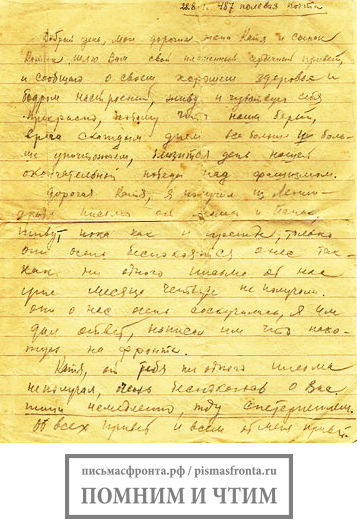 487 полевая почта
Добрый день, мои дорогие жена Катя и сынок
шлю Вам свой пламенный сердечный привет,
и сообщаю о своем хорошем здоровье и
бодром настроении, живу и чувствую себя
прекрасно, потому что наша берет,
врага с каждым днем все больше и боль-
ше уничтожаем, близится день нашей
окончательной победы над фашизмом.
Дорогая Катя, я получил из Ленин-
града письмо от
живут пока как и прежде, только
они очень беспокоятся о нас так-
как ни одного письма от нас
уже месяца четыре не получали.
они о нас очень соскучились, я им
дал ответ, написал им что нахо-
жусь на фронте.
Катя, от тебя ни одного письма
неполучал, очень беспокоюсь о Вас
пиши немедленно жду снетерпением.
От всех привет и всем от меня привет.
письмасфронта.рф / pismasfronta.ru
ПОМНИМ И ЧТИМ